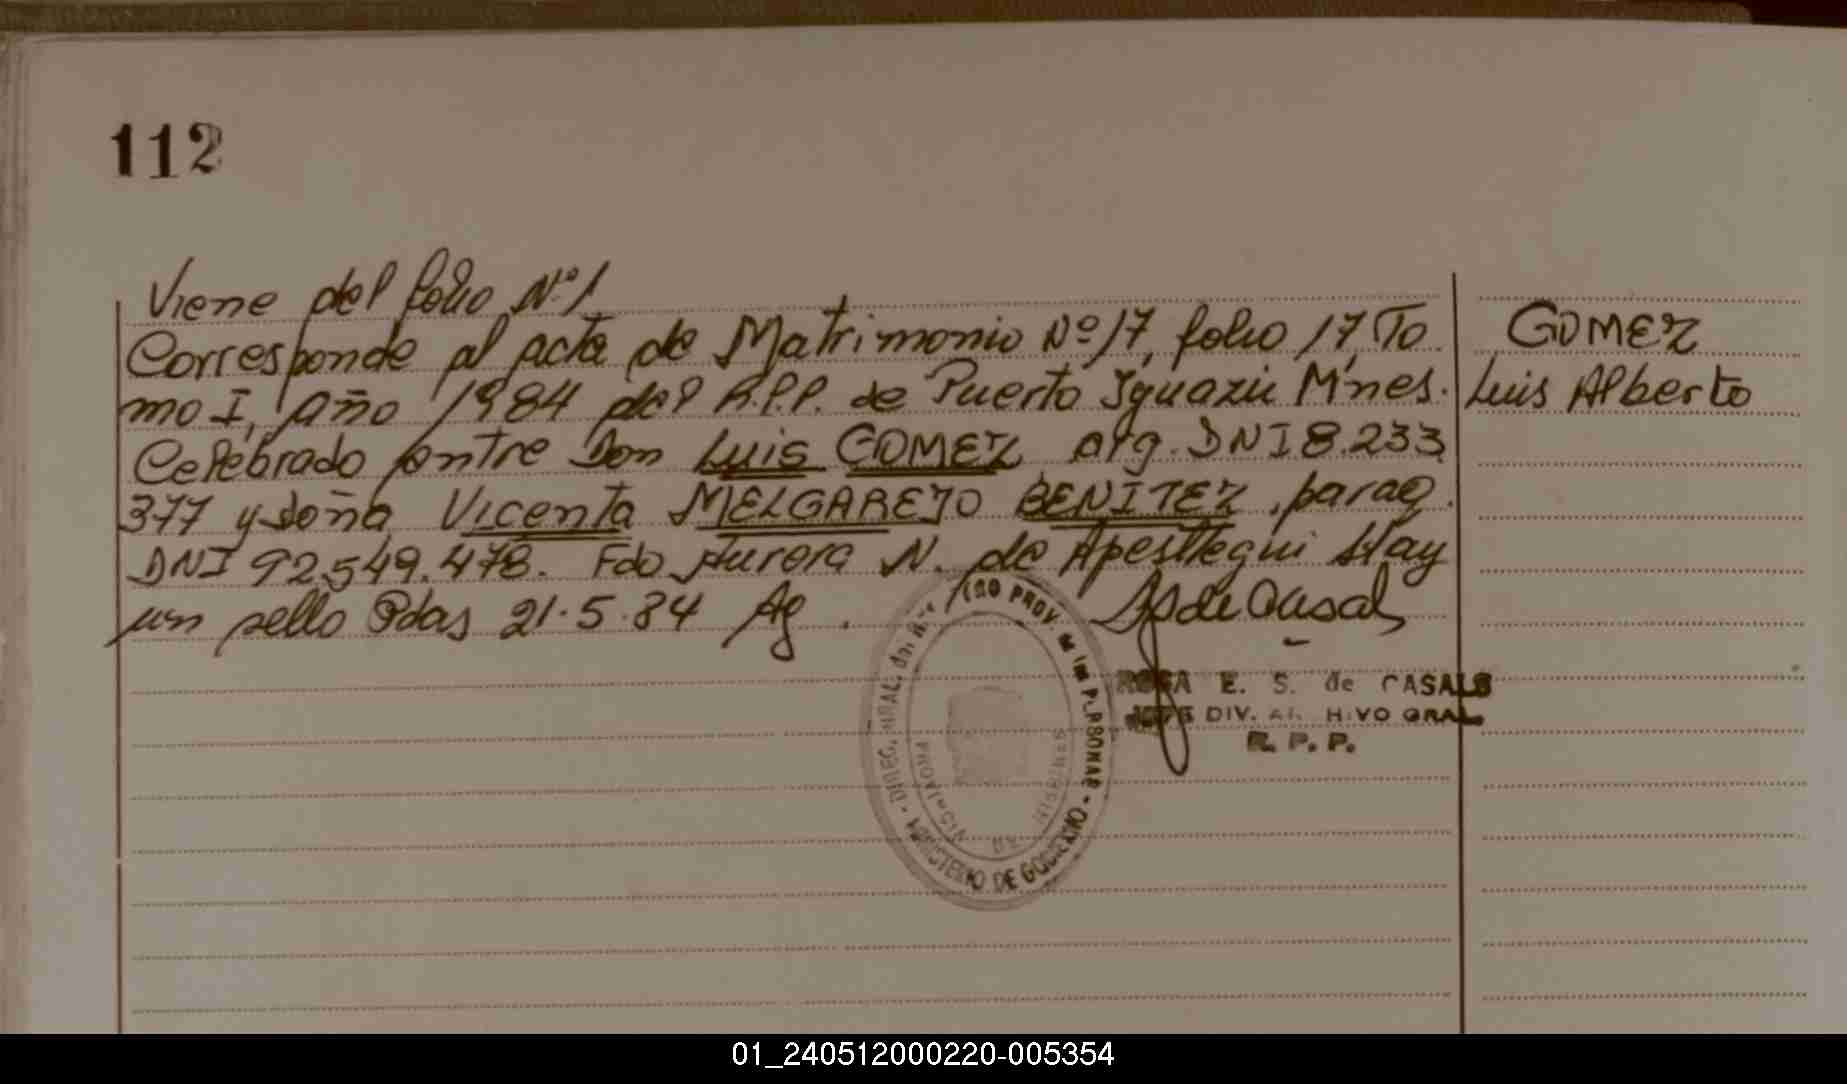 112
Viene del folio Nº 1
Corresponde al acta de Matrimonio Nº 17, folio 17, To
mo I, año 1984 del R.P.P. de Puerto Iguazú M'nes.
Celebrado entre Don Luis GOMEZ arg. DNI 8.233
377 y doña Vicenta MELGAREJO BENITEZ, parag.
DNI 92.549.478. Fdo Aurora N. de Apesttegui Hay
un sello Pdas 21.5.84 Ag.
GOMEZ
Luis Alberto
ROSA E. S. de CASALS
JEFE DIV. ARCHIVO GRAL.
R. P. P.
MINISTERIO DE GOBIERNO
PROVINCIA DE MISIONES
01_240512000220-005354